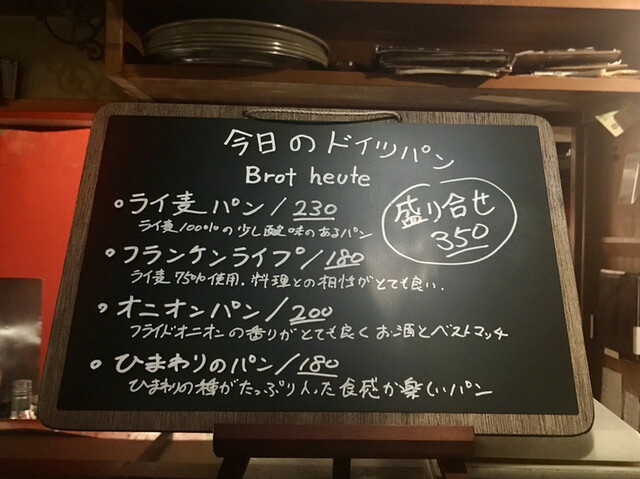 今日のドイツパン
Brot heute
ライ麦パン/230
ライ麦100%の少し酸味のあるパン
盛り合せ
350
フランケンライプ/180
ライ麦75%使用.料理との相性がとても良い.
オニオンパン/200
フライドオニオンの香りがとても良くお酒とベストマッチ
ひまわりのパン/180
ひまわりの種がたっぷり入った食感が楽しいパン